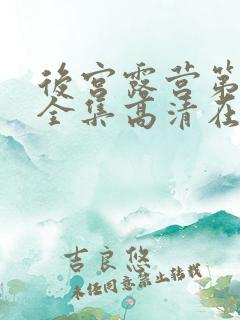 後宮露营第
全集高清在
吉良悠
未经同意禁止转载